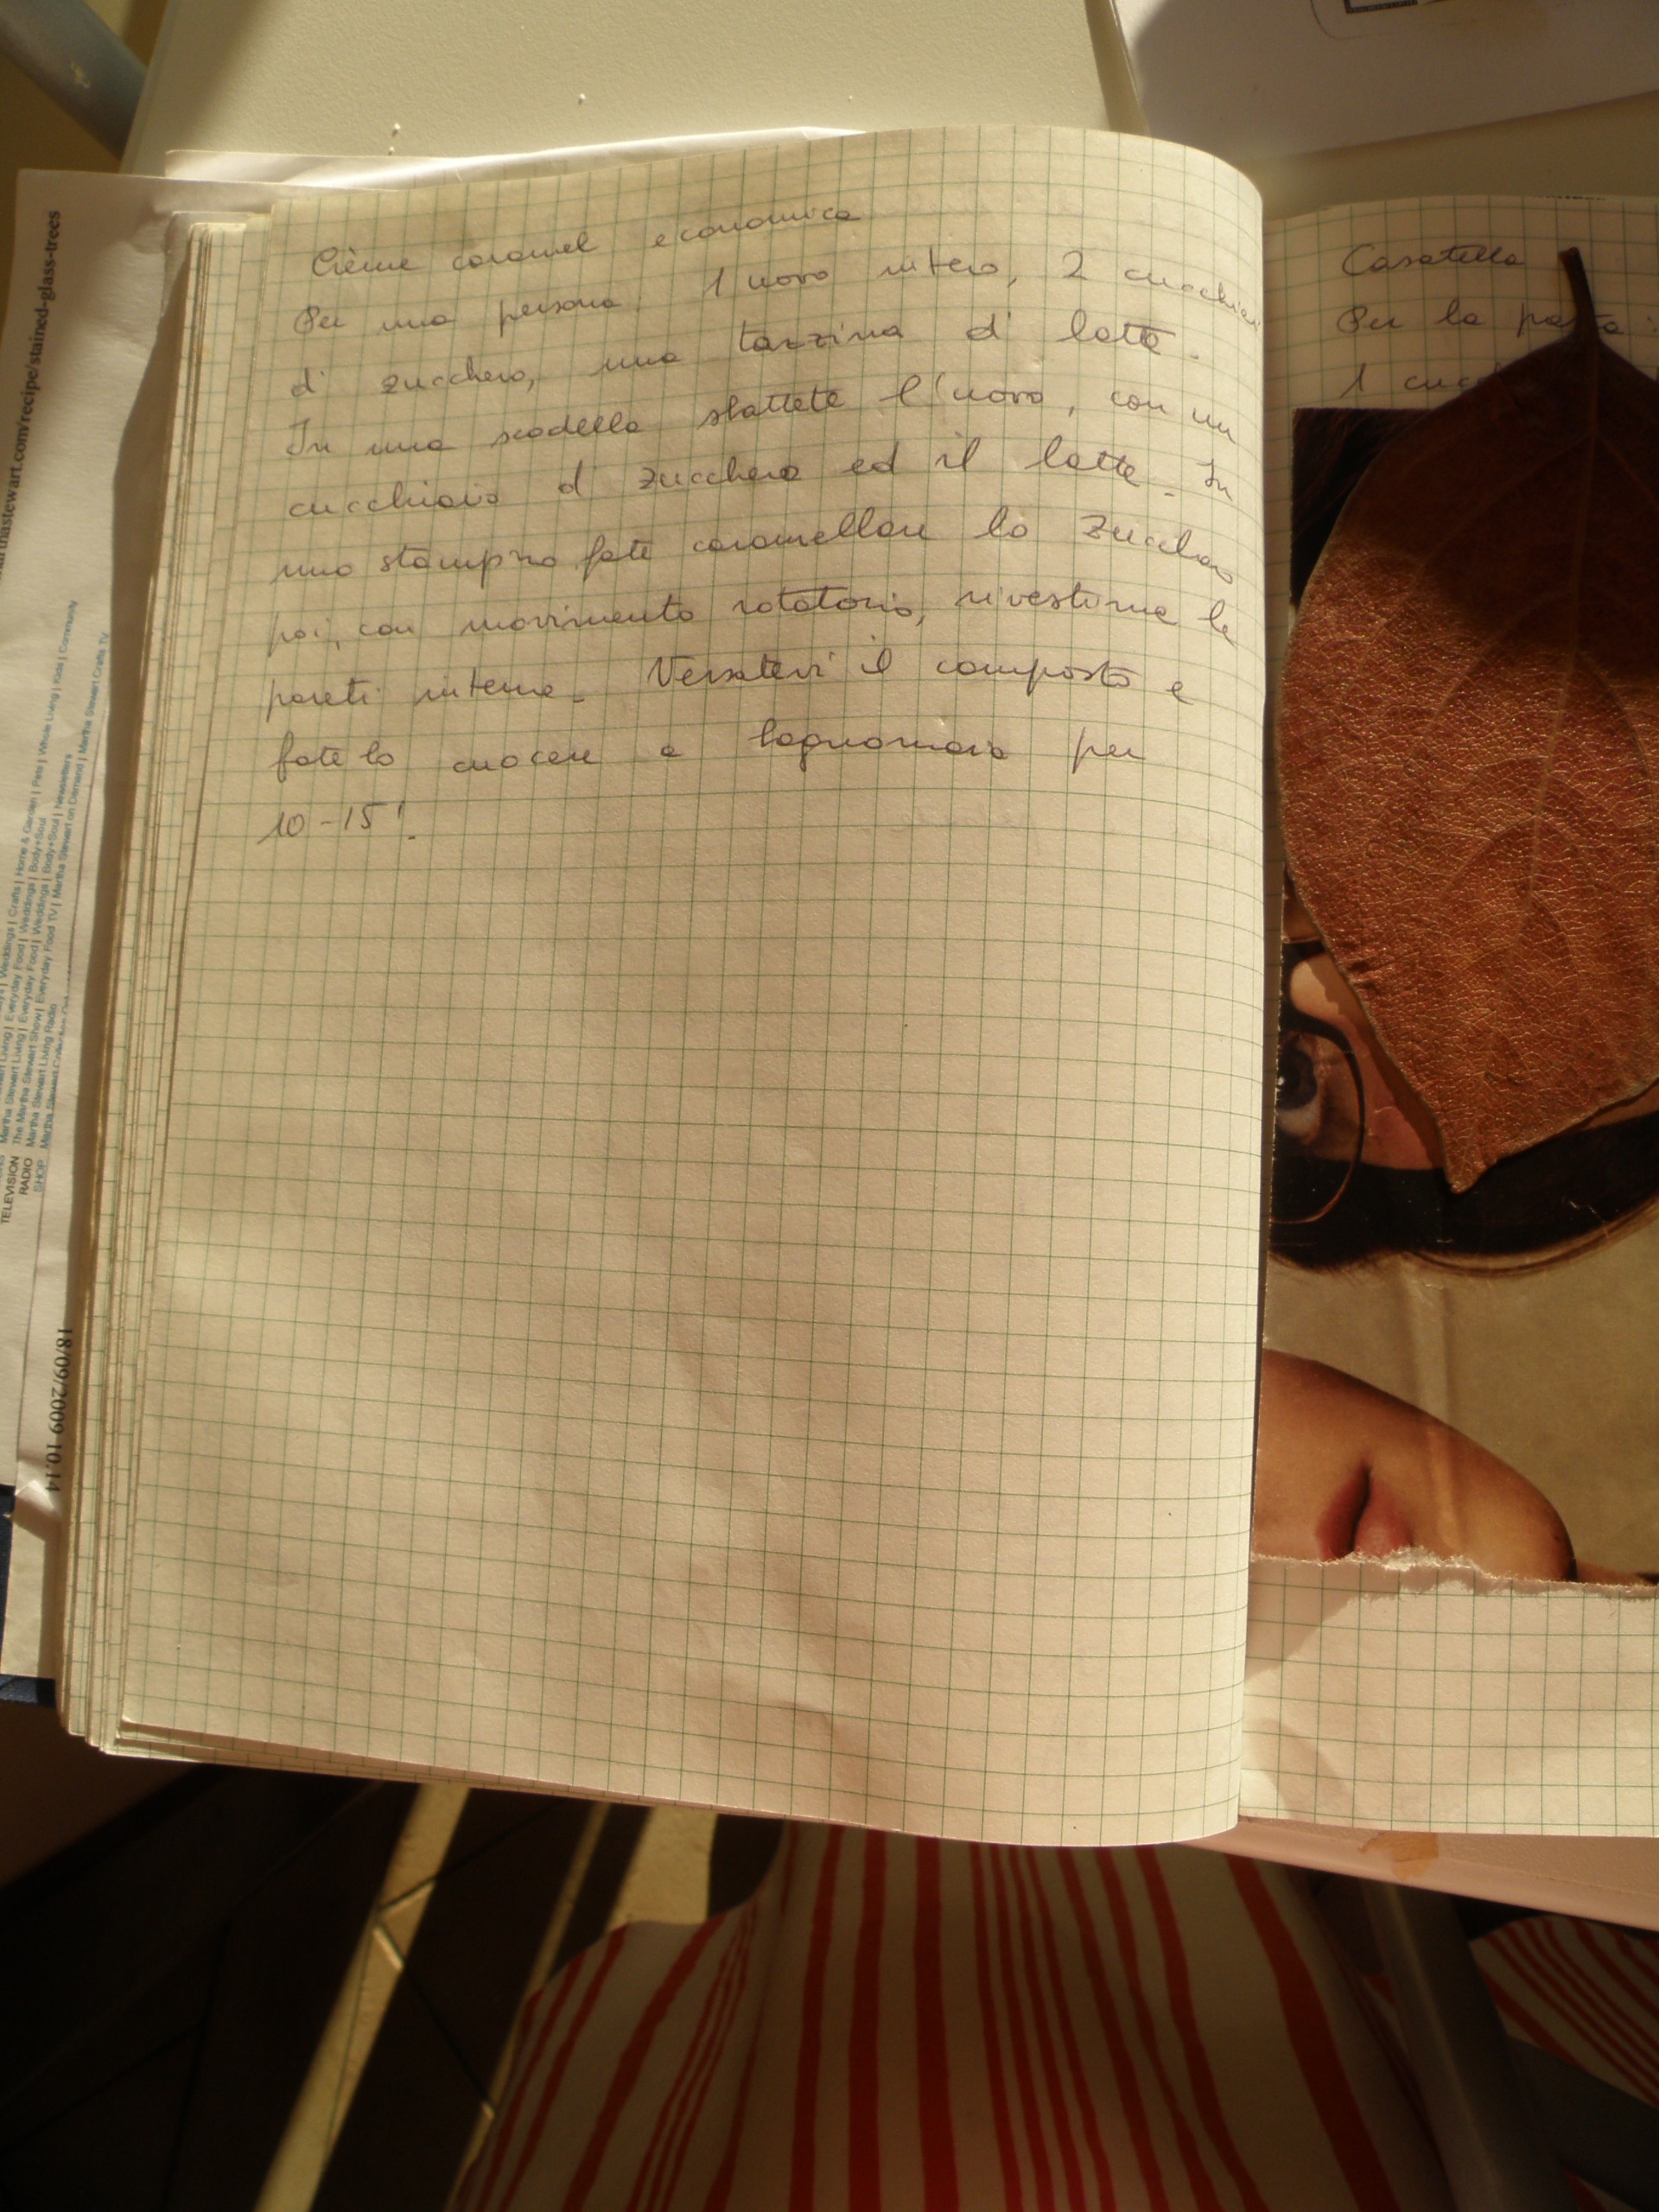 Crème caramel economica
Per una persona: 1 uovo intero, 2 cucchiai
di zucchero, una tazzina di latte.
In una scodella sbattete l'uovo, con un
cucchiaio di zucchero ed il latte. In
uno stampino fate caramellare lo zucchero
poi, con movimento rotatorio, rivestirne le
pareti interne. Versatevi il composto e
fatelo cuocere a bagnomaria per
10-15'.
Casatella
Per la pasta:
1
marthastewart.com/recipe/stained-glass-trees
Weddings | Crafts | Home & Garden | Pets | Whole Living | Kids | Community
Martha Stewart Living | Everyday Food | Weddings | Body+Soul
The Martha Stewart Show | Everyday Food TV | Martha Stewart on Demand | Martha Stewart Crafts TV
Martha Stewart Living Radio
TELEVISION
RADIO
SHOP
18/09/2009 10.14